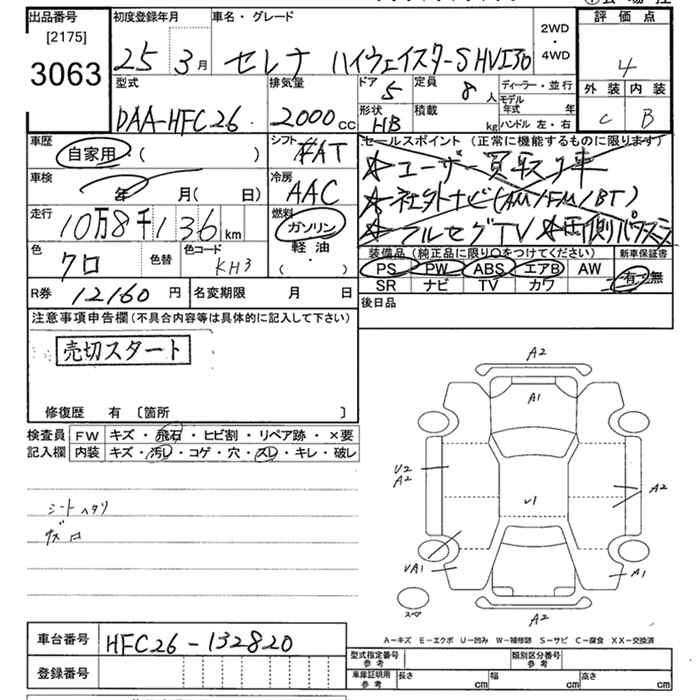 出品番号 初度登録年月 車名・グレード 2WD・4WD 評価点
[2175]
3063
25 3月 セレナ ハイウェイスターSHVエアロ 4
型式 排気量 ドア 5 定員 8人 ディーラー・並行 外装 内装
DAA-HFC26 2000cc 形状 HB 積載 kg モデル年式 年 C B
ハンドル 左・右
車歴 自家用・( ) シフト FAT セールスポイント (正常に機能するものに限ります)
☆ユーザー買取り車
車検 年 月(日) 冷房 AAC ☆社外ナビ(AM/FM/BT)
走行 10万8千136km 燃料 ガソリン・軽油・( ) ☆フルセグTV ☆両側パワスラ
色 クロ 色替 色コード KH3 装備品 (純正品に限り○をつけてください) 新車保証書
PS PW ABS エアB AW 有・無
SR ナビ TV カワ
R券 12160円 名変期限 月 日 後日品
注意事項申告欄(不具合内容等は具体的に記入して下さい)
売切スタート
修復歴 有 〔箇所 〕
検査員 FW キズ・飛石・ヒビ割・リペア跡・×要
記入欄 内装 キズ・汚レ・コゲ・穴・スレ・キレ・破レ
シートヘタリ
A2
A1
U2
A2
U1
A2
UA1
A1
スペア
A2
A－キズ E－エクボ U－凹み W－補修跡 S－サビ C－腐食 XX－交換済
車台番号 HFC26-132820
登録番号
型式指定番号 参考 類別区分番号 参考
車庫証明用 参考 長さ cm 幅 cm 高さ cm